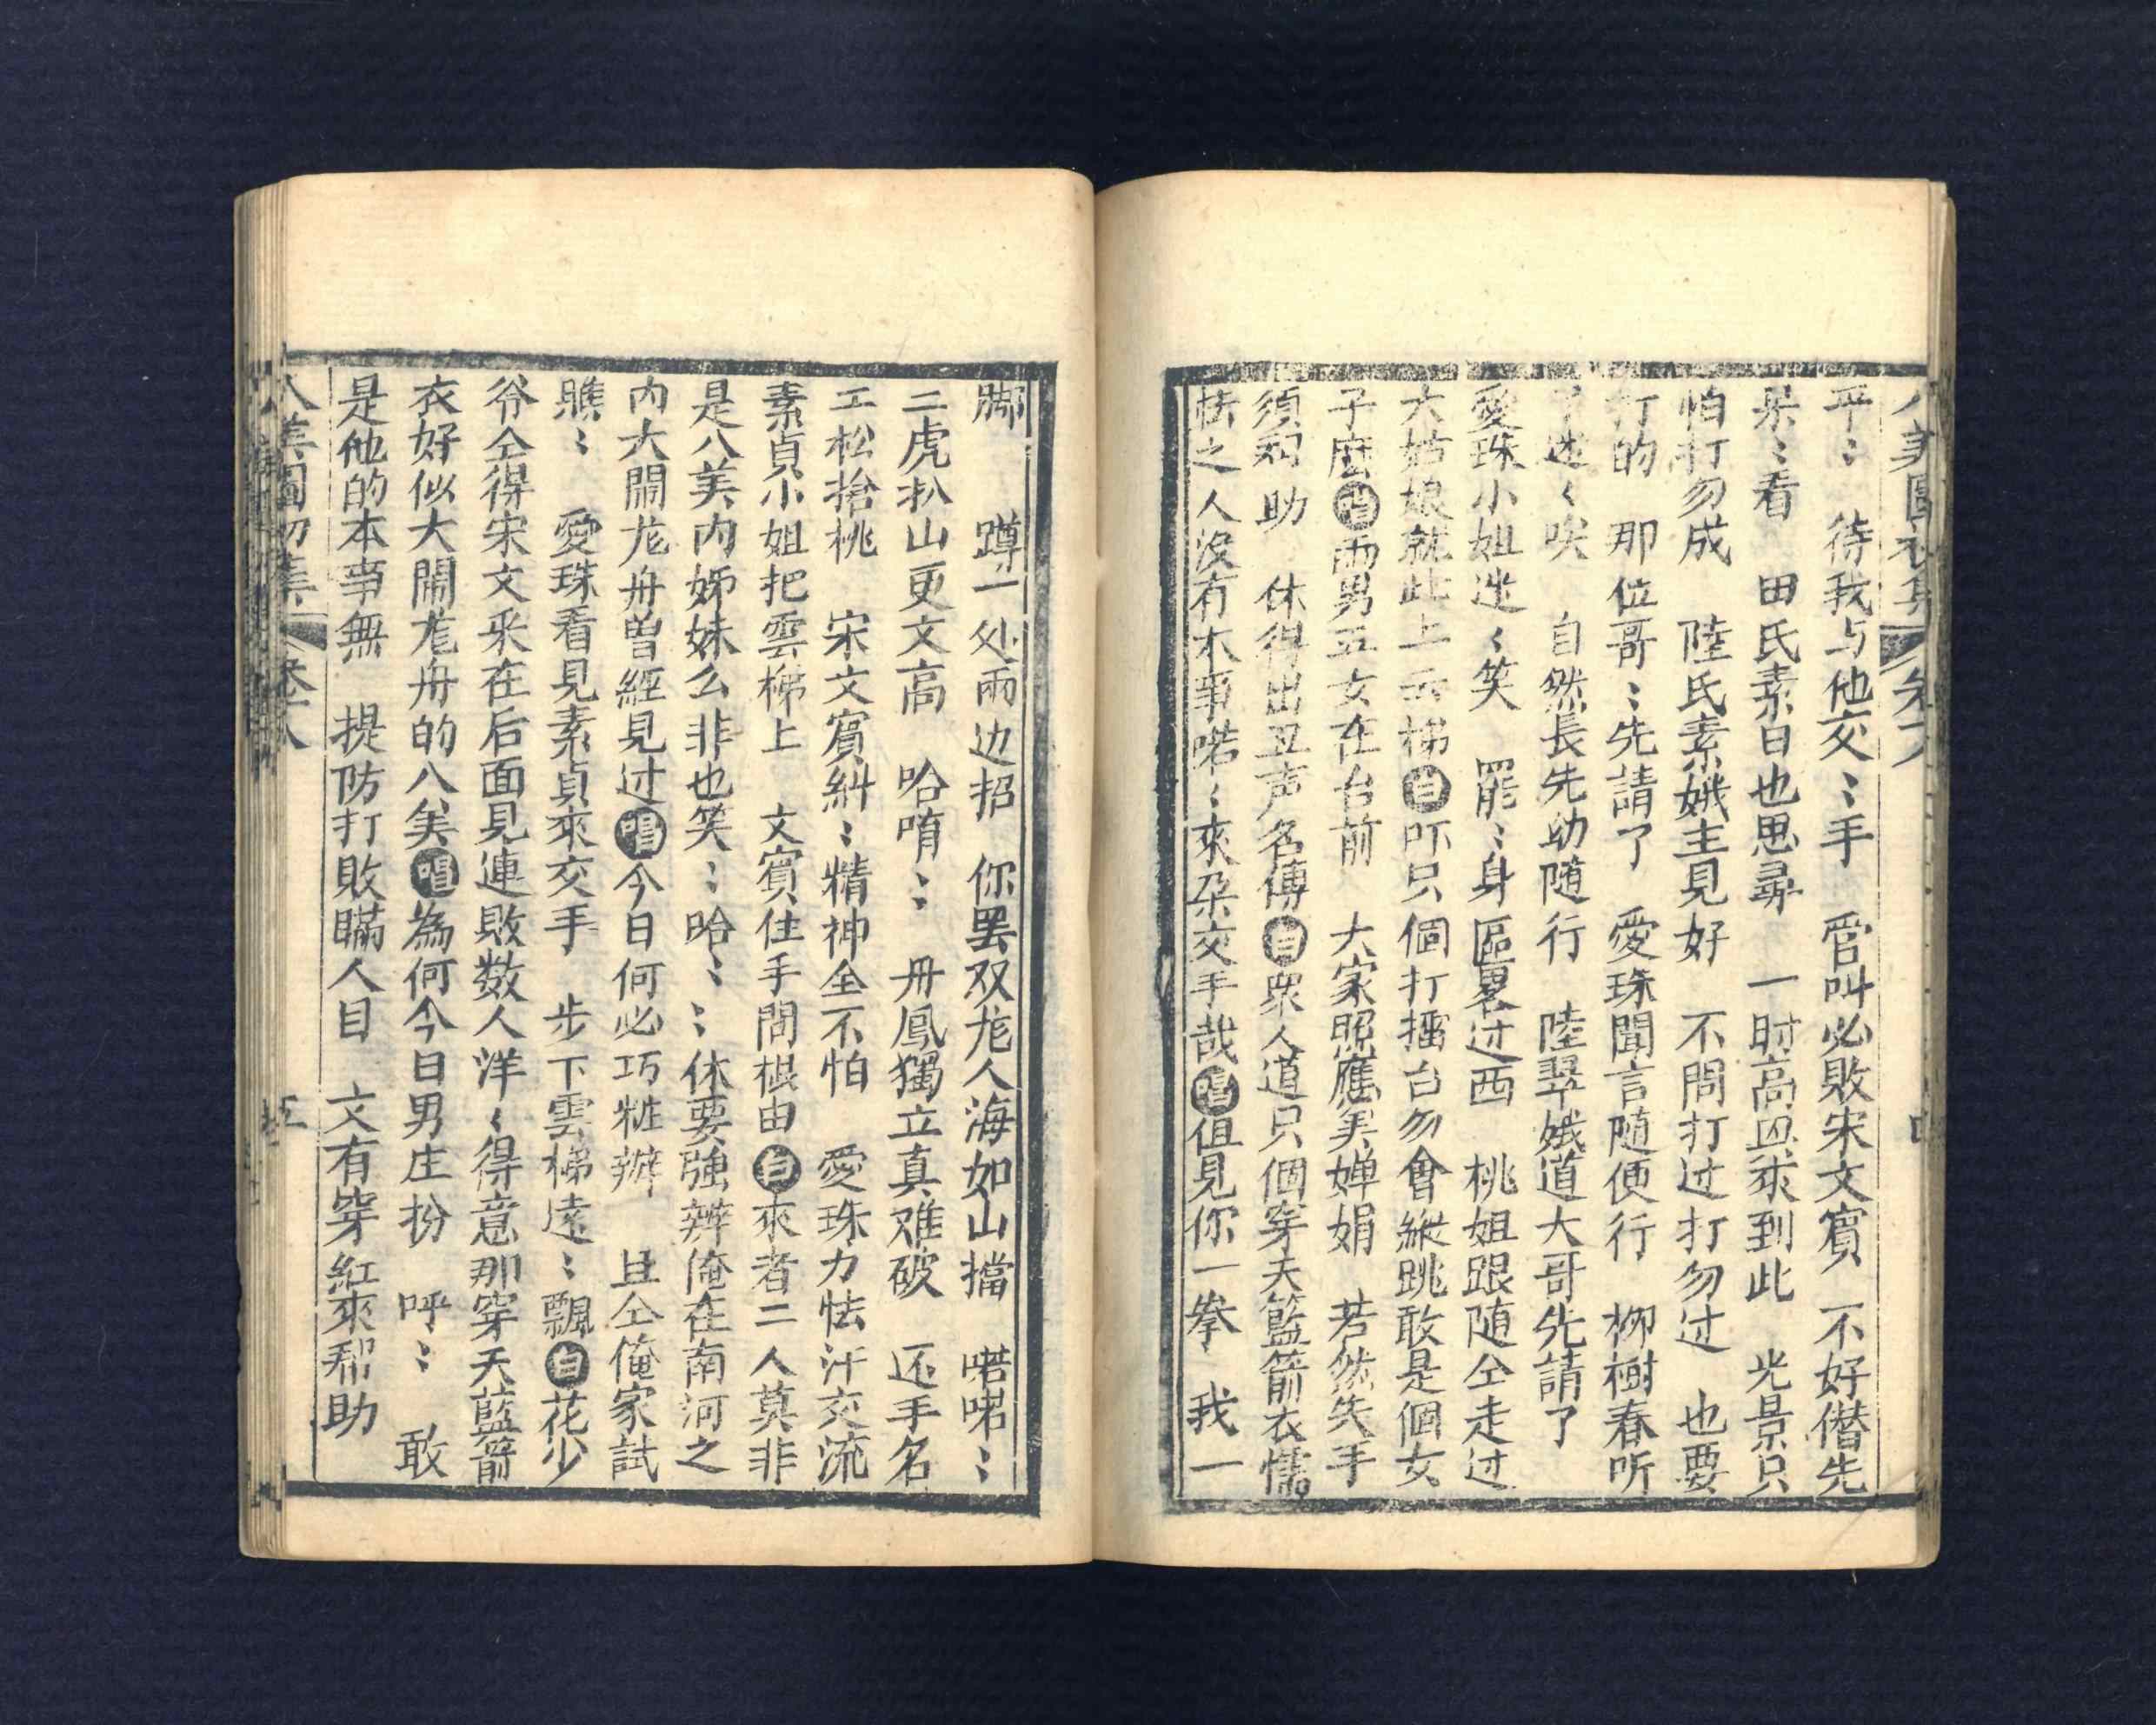 平〻　待我与他交〻手　管叫必敗宋文賓　不好僣先
呆〻看　田氏素日也思尋　一时高興來到此　光景只
怕打勿成　陸氏素娥主見好　不問打过打勿过　也要
打的　那位哥〻先請了　愛珠聞言随便行　柳樹春听
了迷〻唉　自然長先幼随行　陸翠娥道大哥先請了
愛珠小姐迷〻笑　罷〻身軀畧过西　桃姐跟随仝走过
大姑娘就此上云梯白吓只個打擂台勿會縱跳敢是個女
子麽唱兩男五女在台前　大家照應美嬋娟　若然失手
須相助　休得出丑声名傳白眾人道只個穿天籃箭衣懦
怯之人沒有本事喏〻來朶交手哉唱但見你一拳　我一
脚　蹲一处兩边招　你罢双龙人海如山擋　喏喏〻
二虎扒山更文高　哈唷〻　丹鳳獨立真难破　还手名
工松搶桃　宋文賓糾〻精神全不怕　愛珠力怯汗交流
素貞小姐把雲梯上　文賓住手問根由白來者二人莫非
是八美内姊妹么非也笑〻哈〻〻休要強辨俺在南河之
内大閙龙舟曽經見过唱今日何必巧粧辦　且仝俺家試
瞧〻　愛珠看見素貞來交手　步下雲梯遠〻飄白花少
爷仝得宋文采在后面見連敗数人洋〻得意那穿天藍箭
衣好似大閙龙舟的八美唱為何今日男庄扮　呼〻　敢
是他的本事無　提防打敗瞞人目　文有穿紅來帮助
八美圖初集　卷八